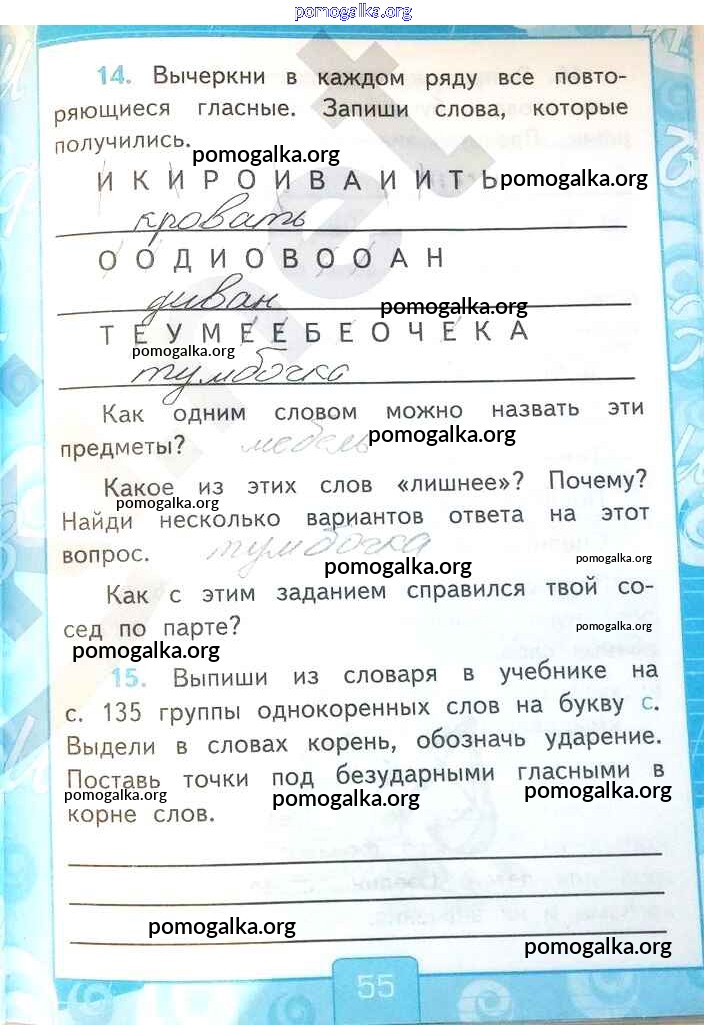 pomogalka.org
14. Вычеркни в каждом ряду все повто-
ряющиеся гласные. Запиши слова, которые
получились.
pomogalka.org
И К И Р О И В А И И Т Ь pomogalka.org
кровать
О О Д И О В О О А Н
диван
pomogalka.org
Т Е У М Е Е Б Е О Ч Е К А
pomogalka.org
тумбочка
Как одним словом можно назвать эти
предметы? мебель pomogalka.org
Какое из этих слов «лишнее»? Почему?
pomogalka.org
Найди несколько вариантов ответа на этот
вопрос. тумбочка
pomogalka.org pomogalka.org
Как с этим заданием справился твой со-
сед по парте? pomogalka.org
pomogalka.org
15. Выпиши из словаря в учебнике на
с. 135 группы однокоренных слов на букву с.
Выдели в словах корень, обозначь ударение.
Поставь точки под безударными гласными в
pomogalka.org pomogalka.org pomogalka.org
корне слов.
pomogalka.org
pomogalka.org
55